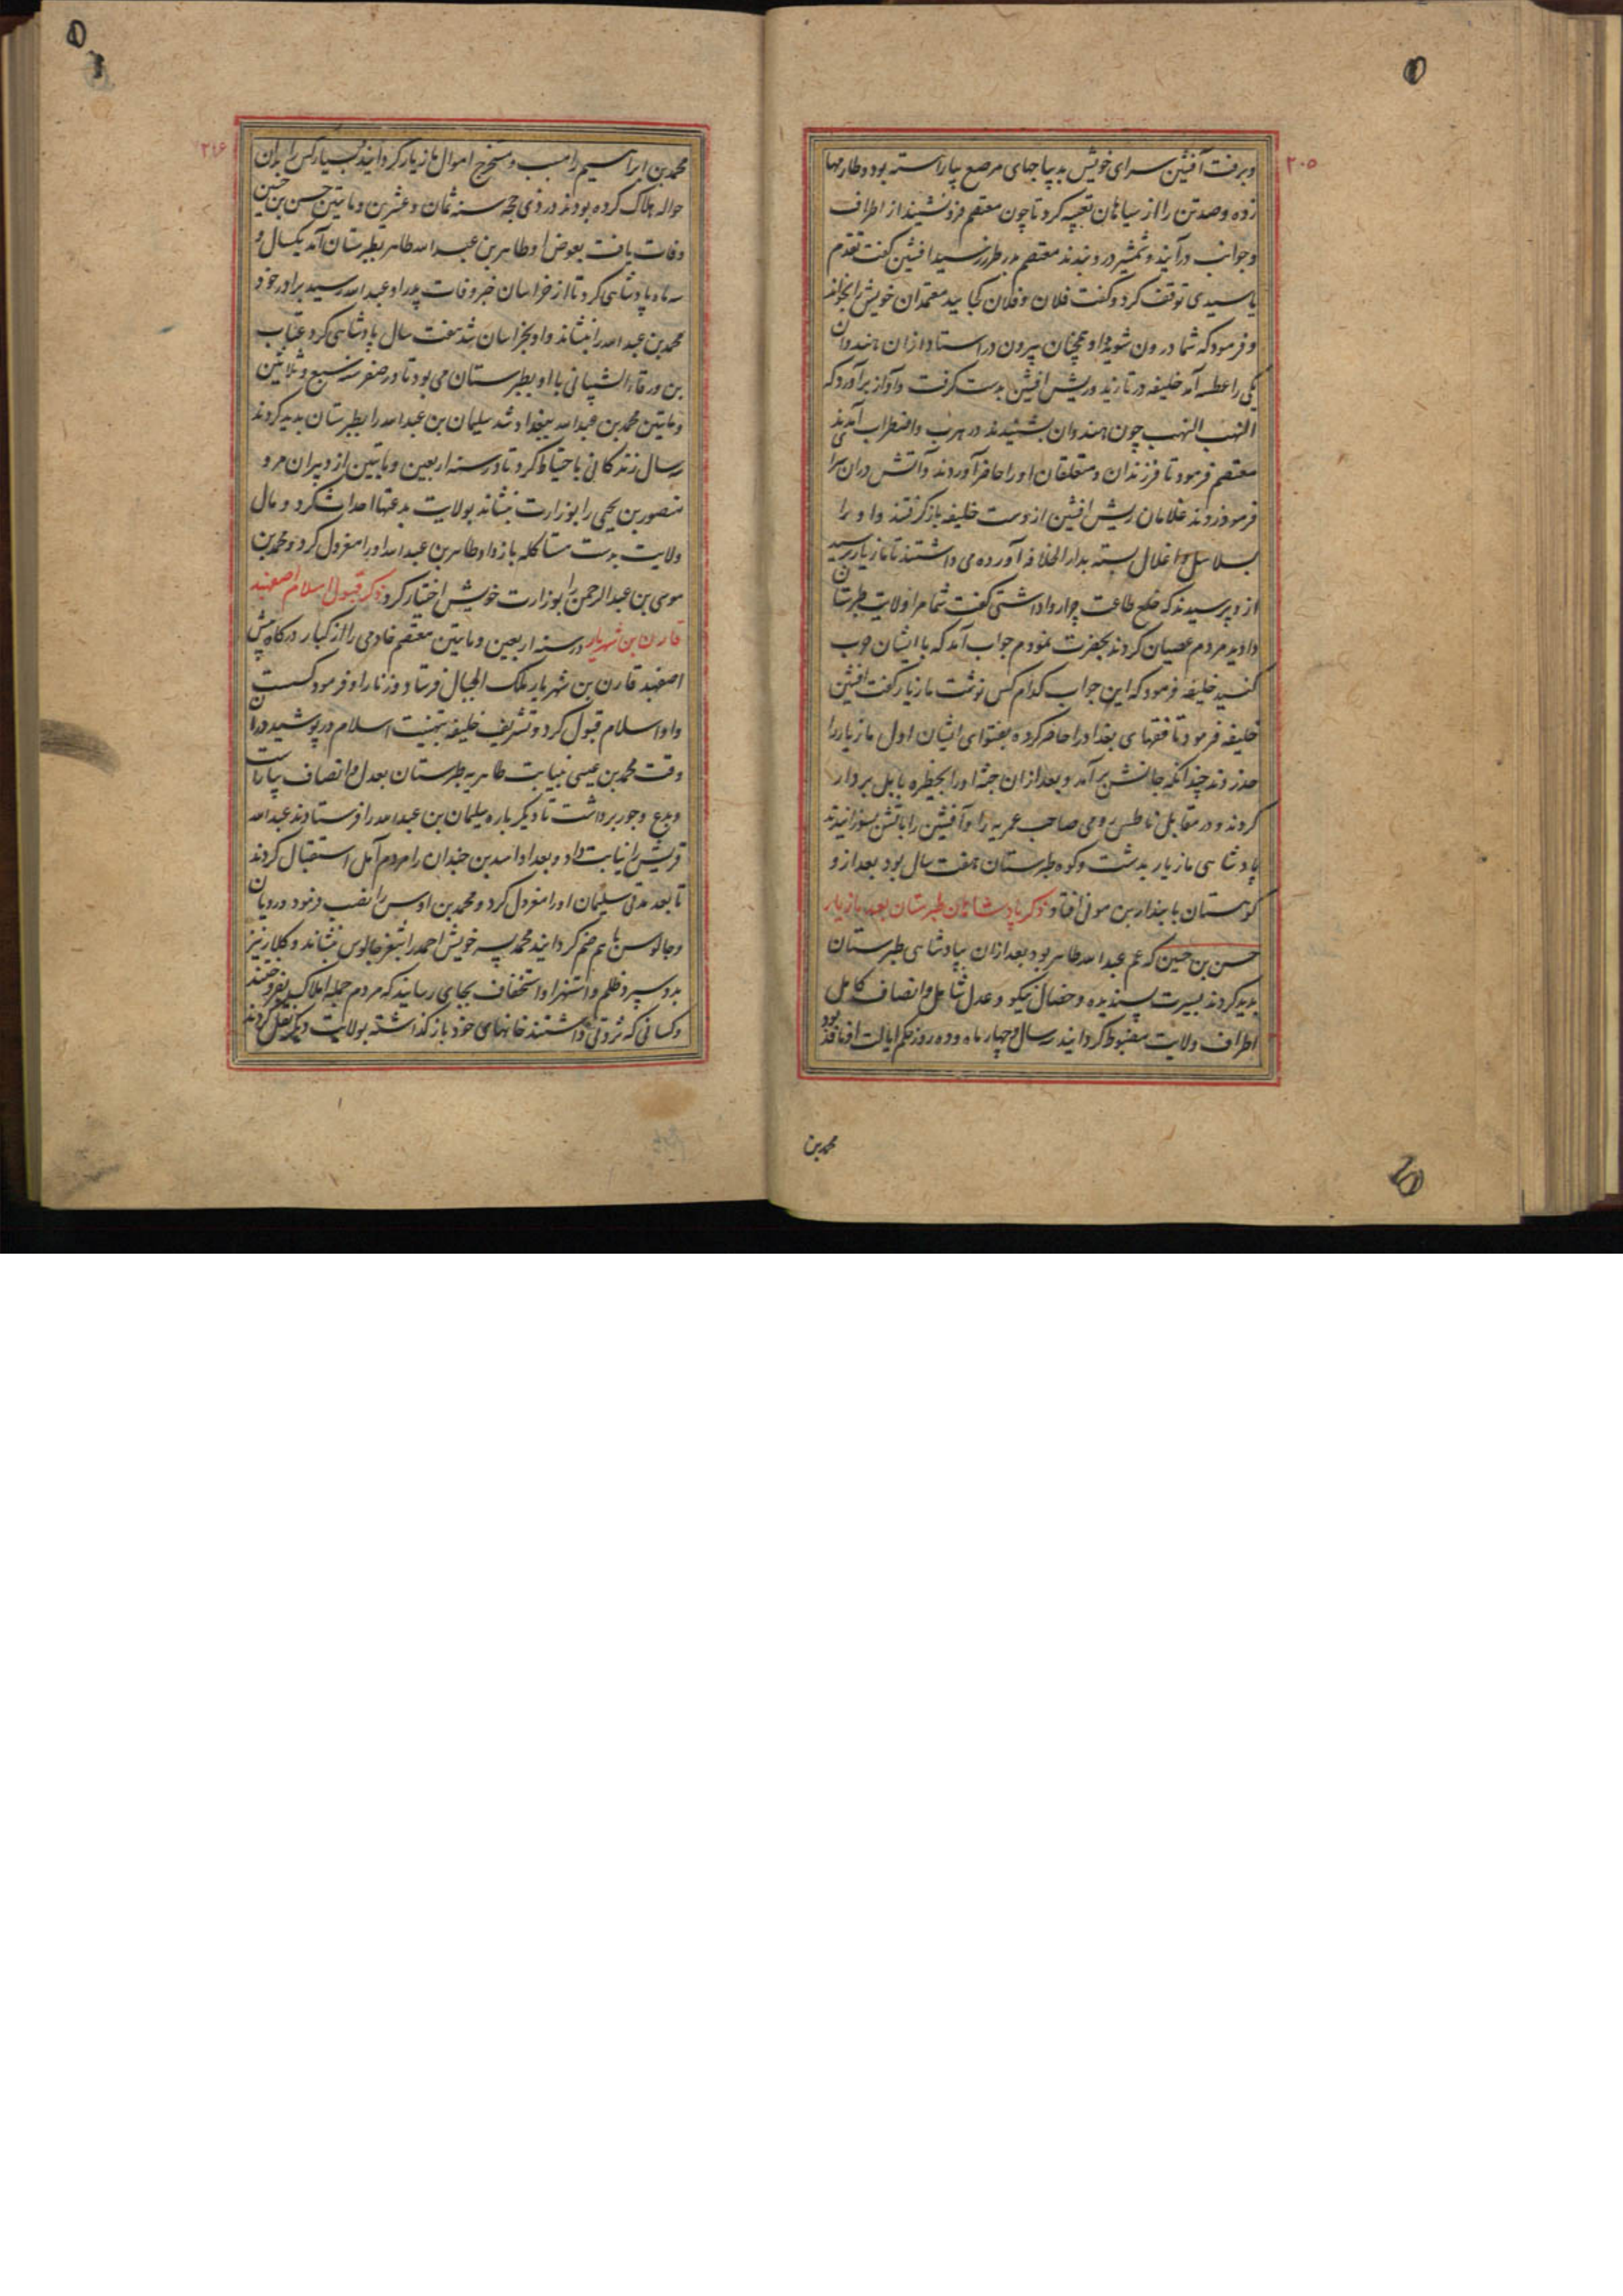 ۲۰۵
و برفت آفشین سرای خویش بدیباجهای مرصع بیاراسته بود و طارمها
زده و صد تن را از سیاهان تعبیه کرد تا چون معتصم فرو نشیند از اطراف
و جوانب درآیند و شمشیر درو نهند معتصم بدر طرز رسید افشین گفت تقدم
یا سیدی توقف کرد و گفت فلان و فلان کجایید معتمدان خویش را بخواند
و فرمود که شما درون شوید و او همچنان بیرون در استاد از آن هندوان
یکی را عطسه آمد خلیفه در تازید و ریش افشین بدست گرفت و آواز برآورد که
النهب النهب چون هندوان بشنیدند در هرب و اضطراب آمدند
معتصم فرمود تا فرزندان و متعلقان او را حاضر آوردند و آتش در آن سرا
فرمود زدند غلامان ریش افشین از دست خلیفه باز گرفتند و او را
بسلاسل و اغلال بسته بدار الخلافه آورده می داشتند تا مازیار برسید
ازو پرسیدند که خلع طاعت چرا روا داشتی گفت شما مرا ولایت طبرستان
دادید مردم عصیان کردند بحضرت نمودم جواب آمد که با ایشان حرب
کنید خلیفه فرمود که این جواب کدام کس نوشت مازیار گفت افشین
خلیفه فرمود تا فقهای بغداد را حاضر کرده بفتوای ایشان اول مازیار را
حد زدند چندانکه جانش برآمد و بعد از آن جثه او را بحظیره بابل بر دار
کردند و در مقابل ناطس رومی صاحب عمریه را و آفشین را بآتش بسوزانیدند
پادشاهی مازیار بدشت و کوه طبرستان هفت سال بود بعد ازو
کوهستان با بندار بن موفی افتاد ذکر پادشاهان طبرستان بعد مازیار
حسن بن حسین که عم عبدالله طاهر بود بعد از آن بپادشاهی طبرستان
پدید کردند بسیرت پسندیده و خصال نیکو و عدل شامل و انصاف کامل
اطراف ولایت مضبوط کردانید سه سال و چهار ماه و ده روز حکم ایالت او نافذ بود
محمد بن
۲۰۶
محمد بن ابراهیم را منصب و مستخرج اموال مازیار کردانید بسیار کس را بدان
حواله هلاک کرده بودند در ذی حجه سنه ثمان و عشرین و مایتین حسن بن حسین
وفات یافت بعوض او طاهر بن عبدالله طاهر بطبرستان آمد یکسال و
سه ماه پادشاهی کرد تا از خراسان خبر وفات پدر او عبدالله رسید برادر خود
محمد بن عبدالله را بنشاند و او بخراسان شد هفت سال پادشاهی کرد عتاب
بن ورقاء الشیبانی با او بطبرستان می بود تا در صفر سنه سبع و ثلاثین
و مایتین محمد بن عبدالله ببغداد شد سلیمان بن عبدالله را بطبرستان پدید کردند
سه سال زندکانی باحتیاط کرد تا در سنه اربعین و مایتین از دبیران مرو
منصور بن یحیی را بوزارت بنشاند بولایت بدعتها احداث کرد و مال
ولایت بدست مستاکله باز داد طاهر بن عبدالله او را معزول کرد و محمد بن
موسی بن عبدالرحمن را بوزارت خویش اختیار کرد ذکر قبول اسلام اصفهبد
قارن بن شهریار در سنه اربعین و مایتین معتصم خادمی را از کبار درکاه پیش
اصفهبد قارن بن شهریار ملک الجبال فرستاد و زنار را و فرمود کسست
و او اسلام قبول کرد و تشریف خلیفه بتهنیت اسلام در پوشید در آن
وقت محمد بن عیسی نیابت طاهریه طبرستان بعدل و انصاف بیاراست
و بدع و جور برداشت تا دیکر باره سلیمان بن عبدالله را فرستادند عبدالله
قریش را نیابت داد و بعد او اسد بن جندان را مردم آمل استقبال کردند
تا بعد مدتی سلیمان او را معزول کرد و محمد بن اوس را نصب فرمود و رویان
و چالوس با هم ضم کردانید محمد پسر خویش احمد را بثغر چالوس نشاند و کلار نیز
بدو سپرد و ظلم و استهزا و استخفاف بجای رسانید که مردم جمله املاک بفروختند
و کسانی که ثروتی داشتند خانهای خود باز کذاشته بولایت دیکر نقل کردند